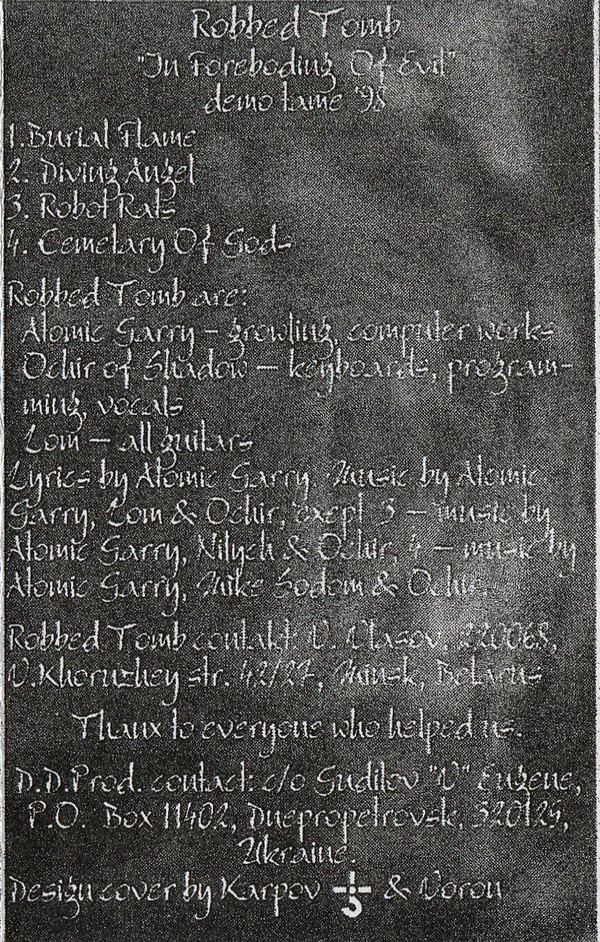 Robbed Tomb
"In Foreboding Of Evil"
demo tame '98
1.Burial Flame
2. Diving Angel
3. Robot Rats
4. Cemetary Of Gods
Robbed Tomb are:
Atomic Garry – growling, computer works
Ochir of Shadow – keyboards, program-
ming, vocals
Lom – all guitars
Lyrics by Atomic Garry. Music by Atomic
Garry, Lom & Ochir, exept 3 – music by
Atomic Garry, Nilych & Ochir, 4 – music by
Atomic Garry, Mike Sodom & Ochir.
Robbed Tomb contakt: V. Vlasov, 220068,
V.Khoruzhey str. 42/27, Minsk, Belarus
Thanx to everyone who helped us.
D.D.Prod. contact: c/o Gudilov "V" Eugene,
P.O. Box 11402, Dnepropetrovsk, 320125,
Ukraine.
Design cover by Karpov & Voron